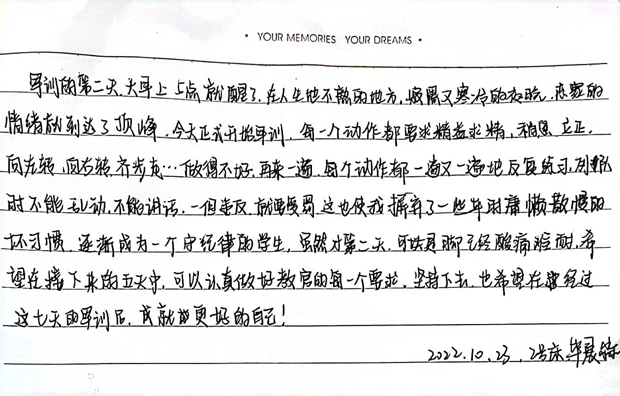 • YOUR MEMORIES YOUR DREAMS •
军训的第二天,大早上5点就醒了,在人生地不熟的地方,漆黑又寒冷的夜晚,恋家的
情绪就到达了顶峰,今天正式开始军训,每一个动作都要求精益求精,稍息、立正,
向左转,向右转齐步走…做得不好,再来一遍,每个动作都一遍又一遍地反复练习,列队
时不能乱动,不能讲话,一但违反,就要受罚,这也使我摒弃了一些平时慵懒散惯的
坏习惯,逐渐成为一个守纪律的学生,虽然才第二天,可是脚已经酸痛难耐,希
望在接下来的五天中,可以认真做好教官的每一个要求,坚持下去,也希望在经过
这七天的军训后,成就更好的自己!
2022.10.23,2号床 华